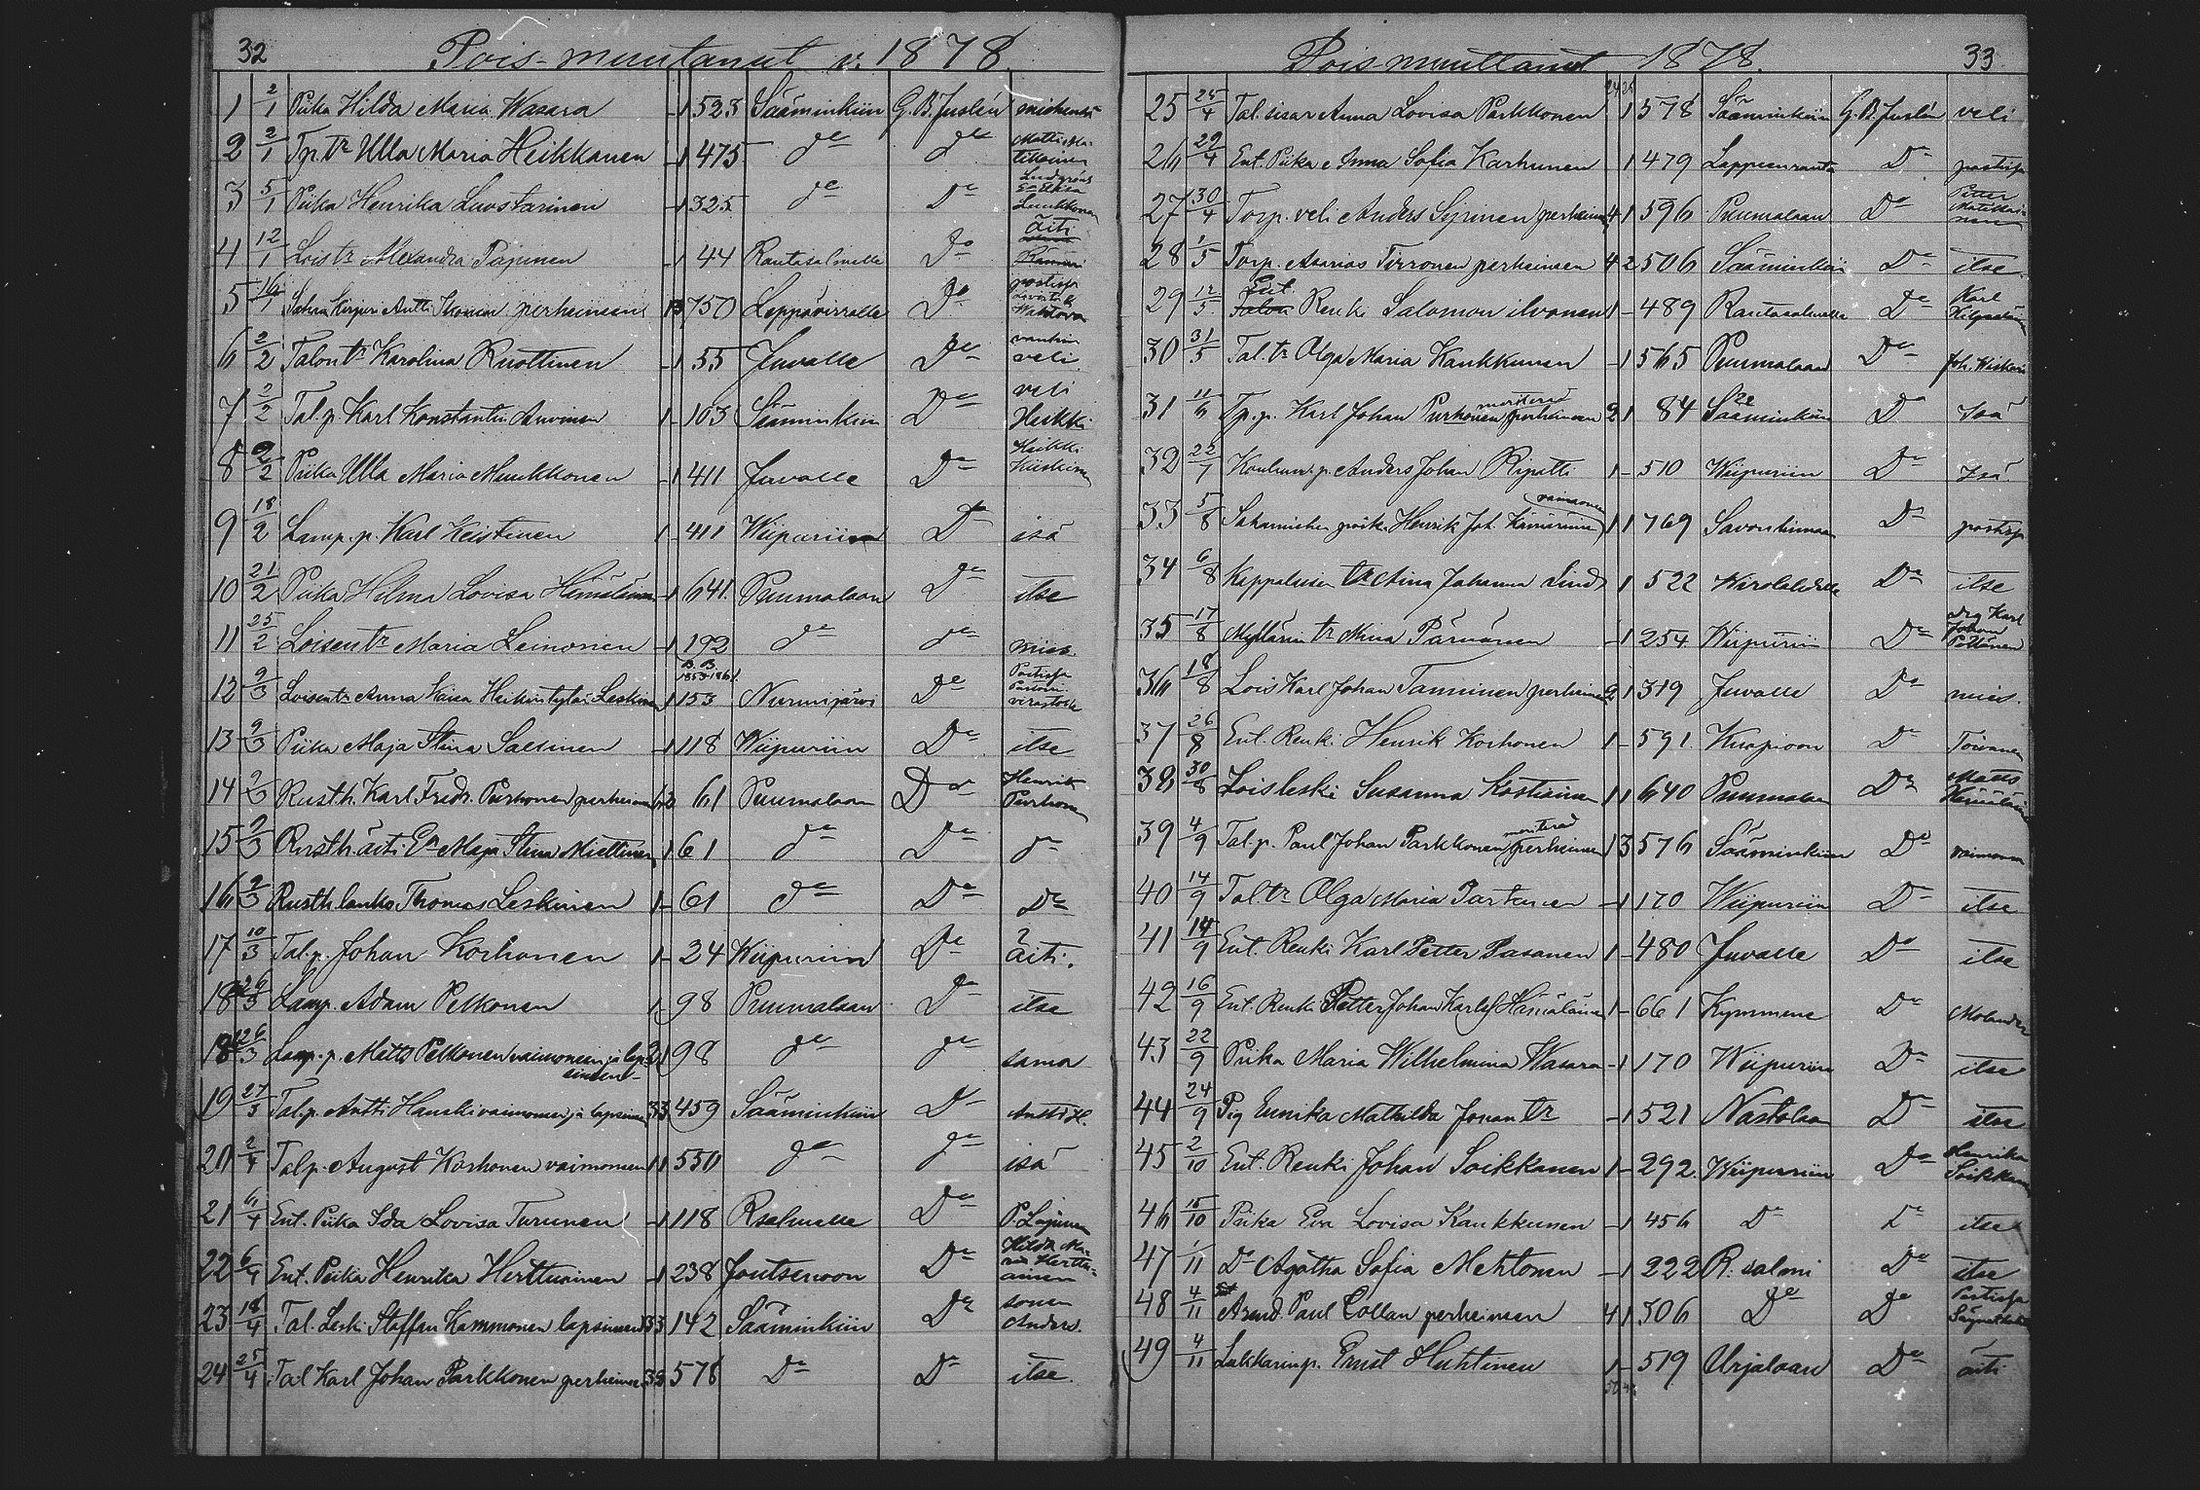 32 Pois-muutanut v. 1878
1 2/1 Piika Hilda Maria Wasara - 1 525 Sääminkiin G. B. Juslén
2 2/1 Tp. tr Ulla Maria Heikkanen - 1 475 de de Matti
3 5/1 Piika Henrika Luostarinen - 1 325 de De
4 12/1 Lois tr Alexandra Papinen - 1 44 Rantasalmelle De äiti
5 16/1 Antti perheineen 750 Leppävirralle De postissa
6 2/2 Talon tr Karolina Ruottinen - 1 55 Juvalle De vanhin veli
7 2/2 Tal. p. Karl Konstantin Auvinen 1 - 103 Sääminkiin De veli Heikki
8 9/2 Piika Ulla Maria Munkkonen - 1 411 Juvalle De Heikki
9 18/2 Lamp. p. Karl Keistinen 1 - 411 Wiipuriin De isä
10 21/2 Piika Helma Lovisa Hämäläinen - 1 641 Puumalaan De itse
11 25/2 Loisen tr Maria Leinonen - 1 192 de de mies
12 9/3 Loisen tr Anna Kaisa Leskinen 1 153 Nurmijärvi De Postissa
13 9/3 Piika Maja Stina Saksinen - 1 118 Wiipuriin De itse
14 9/3 Rusth. Karl Fredr. Purhonen perheineen 61 Puumalaan De Henrik Purhonen
15 9/3 Rusth. äiti Ea Maja Stina Miettinen - 1 61 de De de
16 9/3 Rusth. lanko Thomas Leskinen 1 - 61 de De De
17 10/3 Tal. p. Johan Korhonen 1 - 24 Wiipuriin De äiti.
18 26/3 Lamp. Adam Pelkonen 1 - 98 Puumalaan De itse
18½ 26/3 Lamp. p. Matts Pelkonen vaimoneen ja lapsineen 2 1 98 de de sama
19 27/3 Tal. p. Antti Hauski vaimoneen ja lapsineen 3 3 459 Sääminkiin De Antti
20 2/4 Talp. August Korhonen vaimoneen 1 1 550 de de isä
21 6/4 Ent. Piika Ida Lovisa Turunen - 1 118 Rsalmelle De P.
22 6/4 Ent. Piika Henrika Herttuainen - 1 238 Joutsenoon De Hilda Maria Herttuainen
23 18/4 Tal. Leski Staffan Kammonen lapsineen 3 3 142 Sääminkiin De Anders.
24 25/4 Tal Karl Johan Parkkonen perheineen 578 De De itse.
Pois muuttanut 1878. 33
25 25/4 Tal. sisar Anna Lovisa Parkkonen 1 578 Sääminkiin G. B. Juslén veli
26 29/4 Ent. Piika Anna Sofia Karhunen 1 479 Lappeenranta De postissa
27 30/4 Torp. veli Anders perheineen 4 1 596 Puumalaan De Petter
28 1/5 Torp. Asarias Tirronen perheineen 4 2 506 Sääminkiin De itse
29 12/5 Ent. Renki Salomon Ilvonen 1 - 489 Rantasalmelle De Karl
30 31/5 Tal. tr Olga Maria Kaukkunen - 1 565 Puumalaan De Joh.
31 11/6 Tp. p. Karl Johan Purhonen perheineen 2 1 84 Sääminkiin De Isä
32 22/7 p. Anders Johan Ripatti 1 - 510 Wiipuriin De Isä
33 5/8 Henrik Joh. vaimoneen 1 1 769 Savonlinnaan De postissa
34 6/8 Kappalaisen tr Aina Johanna Lind - 1 522 Wirolahdelle De itse
35 17/8 Myllärin tr Mina Pärnänen - 1 254 Wiipuriin De Karl Johan Peltonen
36 18/8 Lois Karl Johan Tanninen perheineen 2 1 319 Juvalle De mies.
37 26/8 Ent. Renki Henrik Korhonen 1 - 591 Kuopioon De Toivanen
38 30/8 Loisleski Susanna Kostiainen 1 1 640 Puumalaan De Matts Hämäläinen
39 4/9 Tal. p. Paul Johan Parkkonen perheineen 1 3 576 Sääminkiin De vaimonsa
40 14/9 Tal. tr Olga Maria Partanen - 1 170 Wiipuriin De itse
41 14/9 Ent. Renki Karl Petter Pasanen 1 - 480 Juvalle De itse
42 16/9 Ent. Renki Petter Johan Karlss. Hämäläinen 1 - 661 Kymmene De Molander
43 22/9 Piika Maria Wilhelmina Wasara - 1 170 Wiipuriin De itse
44 24/9 Pig Eunika Mathilda Johan tr - 1 521 Nastolaan De itse
45 2/10 Ent. Renki Johan Soikkanen 1 - 292 Wiipuriin De Henrika Soikkanen
46 15/10 Piika Eva Lovisa Kaukkunen - 1 456 De De itse
47 1/11 De Agatha Sofia Mehtonen - 1 222 R. salmi De itse
48 4/11 Arend. Paul Collan perheineen 4 1 306 De De Postissa
49 4/11 Lukkarin p. Ernst Huhtinen 1 - 519 Urjalaan De äiti